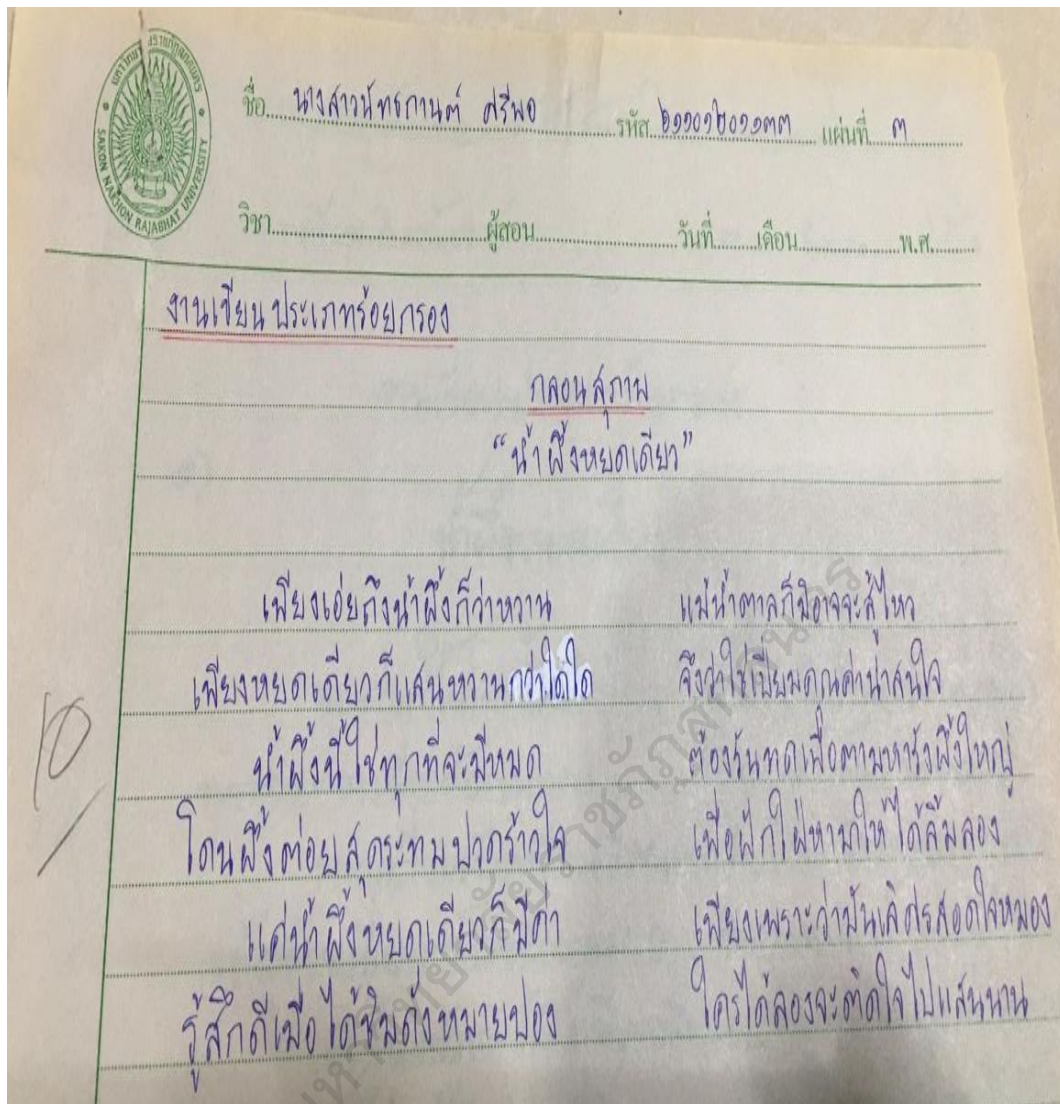 SAKON NAKHON RAJABHAT UNIVERSITY
ชื่อ นางสาวนัทธกานต์ ศรีพอ รหัส ๖๑๑๐๑๒๐๑๑๓๓ แผ่นที่ ๓
วิชา ผู้สอน วันที่ เดือน พ.ศ.
งานเขียนประเภทร้อยกรอง
กลอนสุภาพ
“น้ำผึ้งหยดเดียว”
เพียงเอ่ยถึงน้ำผึ้งก็ว่าหวาน แม้น้ำตาลก็มิอาจจะสู้ไหว
เพียงหยดเดียวก็แสนหวานกว่าใดใด จึงว่าใช่เปี่ยมคุณค่าน่าสนใจ
น้ำผึ้งนี้ใช่ทุกที่จะมีหมด ต้องรันทดเพื่อตามหารังผึ้งใหญ่
โดนผึ้งต่อยสุดระทมปวดร้าวใจ เพื่อฝักใฝ่หามาให้ได้ลิ้มลอง
แค่น้ำผึ้งหยดเดียวก็มีค่า เพียงเพราะว่ามันเลิศรสอดใจหมอง
รู้สึกดีเมื่อได้ชิมดั่งหมายปอง ใครได้ลองจะติดใจไปแสนนาน
10